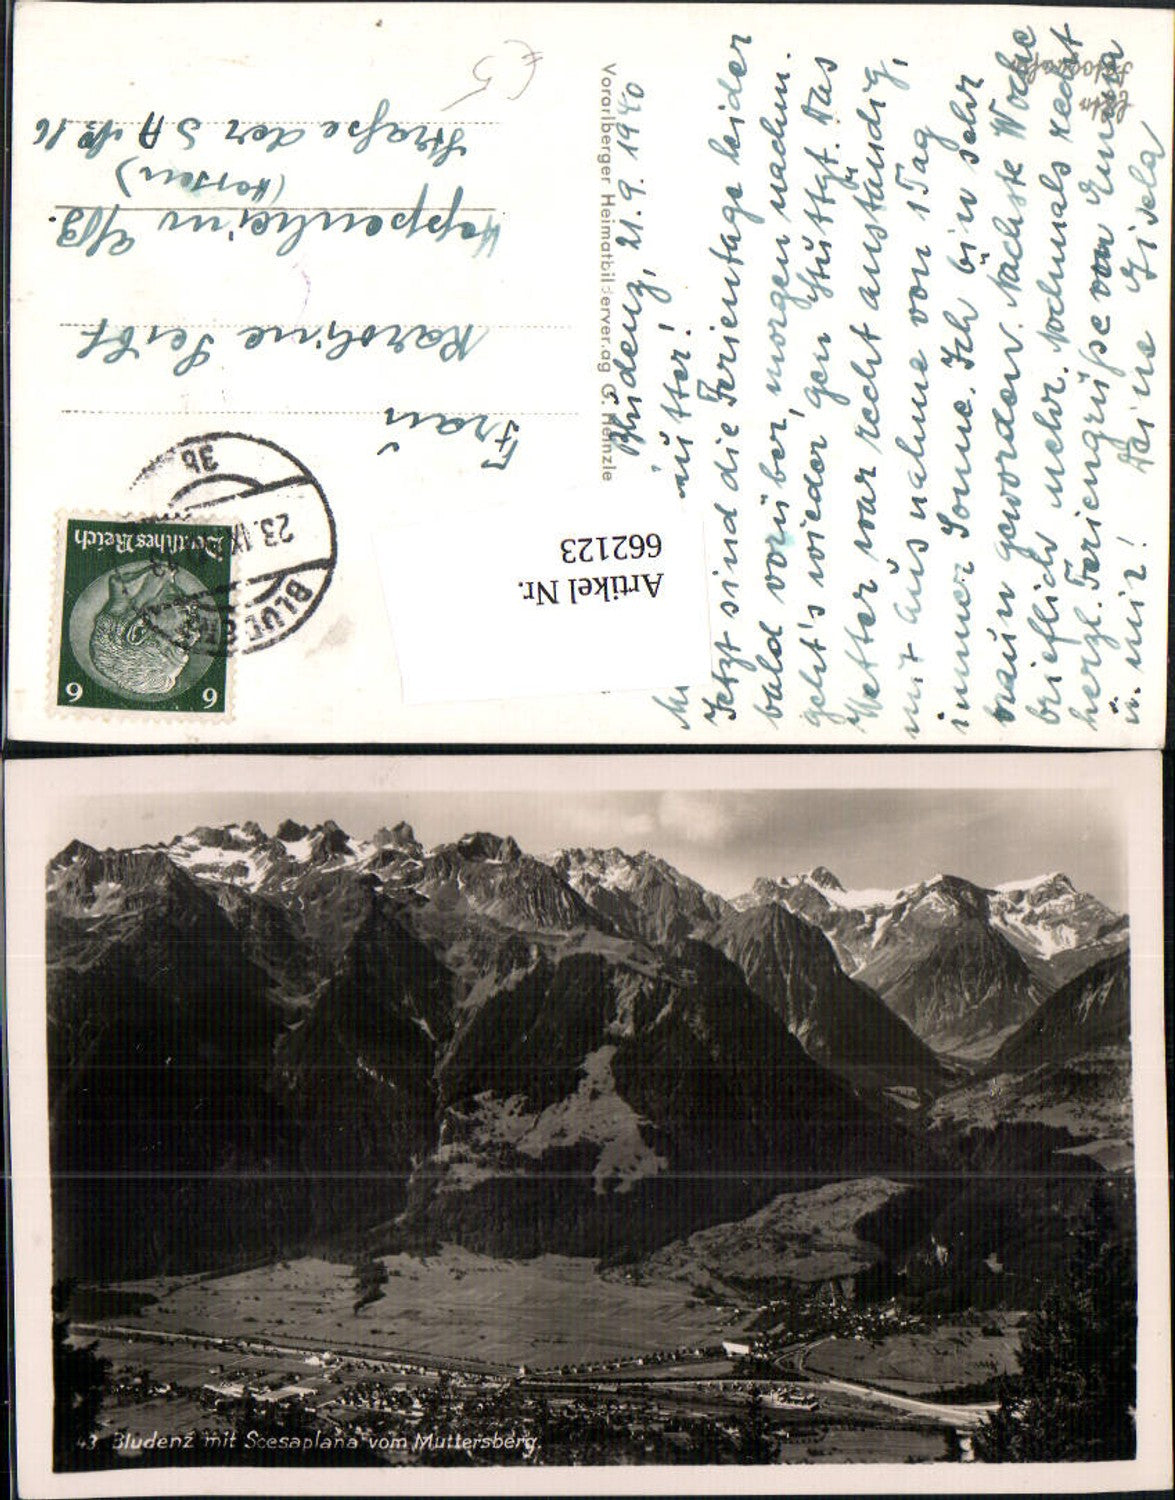 Bludenz, 21.9.1940
Jetzt sind die Ferientage leider
bald vorüber, morgen nachm.
geht's wieder gen Stuttgt. Das
Wetter war recht anständig,
mit Ausnahme von 1 Tag
immer Sonne. Ich bin sehr
braun geworden. Nächste Woche
brieflich mehr. Nochmals recht
herzl. Feriengrüße von Emma
u. mir! Deine Gisela
Echte
Fotografie
Vorarlberger Heimatbilderverlag G. Heinzle
Frau
Karoline Seibt
Heppenheim a/B.
(Hessen)
Straße der SA No 16
€ 5
Deutsches Reich
6 6
BLUDENZ
23.IX
3b
Artikel Nr.
662123
43 Bludenz mit Scesaplana vom Muttersberg.